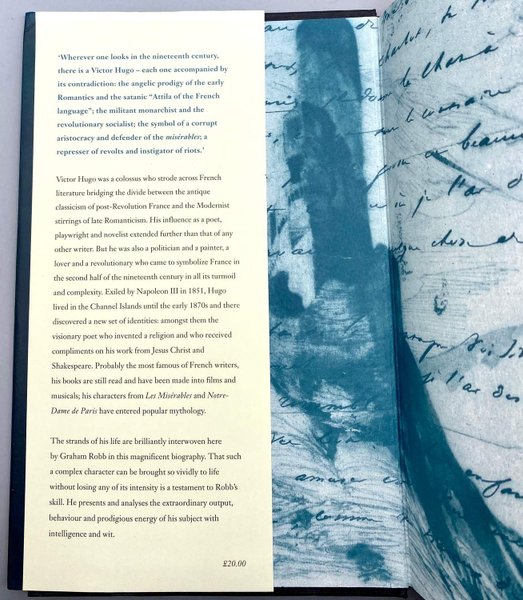 ‘Wherever one looks in the nineteenth century,
there is a Victor Hugo – each one accompanied by
its contradiction: the angelic prodigy of the early
Romantics and the satanic “Attila of the French
language”; the militant monarchist and the
revolutionary socialist; the symbol of a corrupt
aristocracy and defender of the misérables; a
represser of revolts and instigator of riots.’
Victor Hugo was a colossus who strode across French
literature bridging the divide between the antique
classicism of post-Revolution France and the Modernist
stirrings of late Romanticism. His influence as a poet,
playwright and novelist extended further than that of any
other writer. But he was also a politician and a painter, a
lover and a revolutionary who came to symbolize France in
the second half of the nineteenth century in all its turmoil
and complexity. Exiled by Napoleon III in 1851, Hugo
lived in the Channel Islands until the early 1870s and there
discovered a new set of identities: amongst them the
visionary poet who invented a religion and who received
compliments on his work from Jesus Christ and
Shakespeare. Probably the most famous of French writers,
his books are still read and have been made into films and
musicals; his characters from Les Misérables and Notre-
Dame de Paris have entered popular mythology.
The strands of his life are brilliantly interwoven here
by Graham Robb in this magnificent biography. That such
a complex character can be brought so vividly to life
without losing any of its intensity is a testament to Robb’s
skill. He presents and analyses the extraordinary output,
behaviour and prodigious energy of his subject with
intelligence and wit.
£20.00